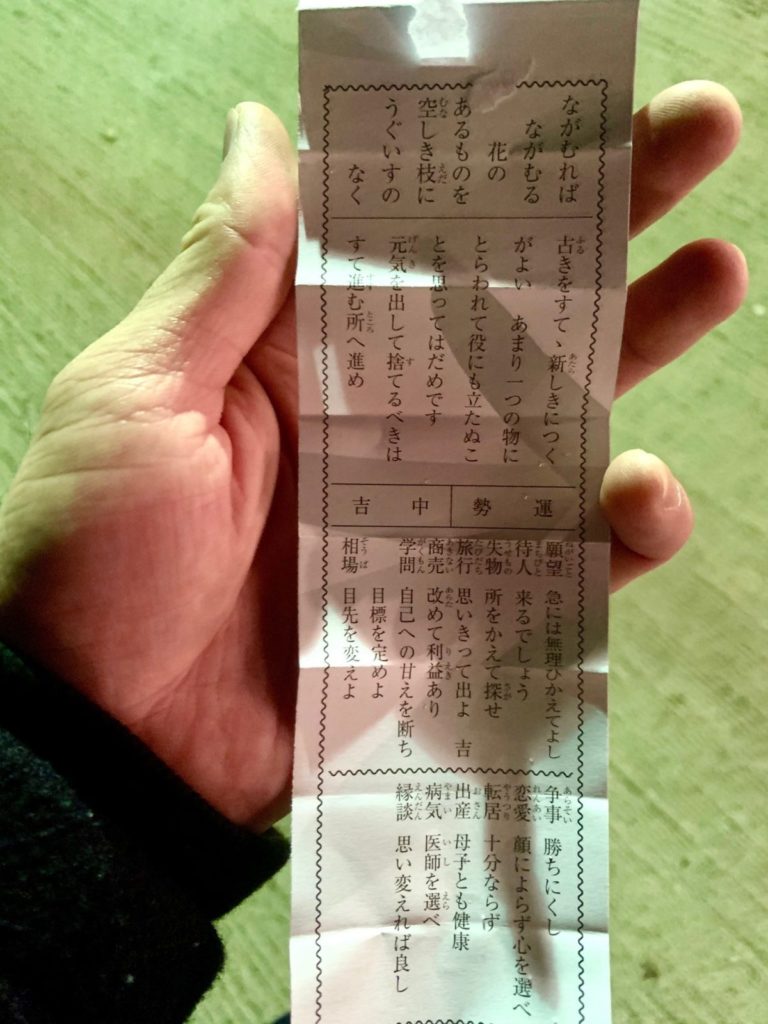 ながむれば
ながむる
花の
あるものを
空しき枝に
うぐいすの
なく
古きをすてゝ新しきにつく
がよい　あまり一つの物に
とらわれて役にも立たぬこ
とを思ってはだめです
元気を出して捨てるべきは
すて進む所へ進め
運勢　中吉
願望　急には無理ひかえてよし
待人　来るでしょう
失物　所をかえて探せ
旅行　思いきって出よ　吉
商売　改めて利益あり
学問　自己への甘えを断ち
目標を定めよ
相場　目先を変えよ
争事　勝ちにくし
恋愛　顔によらず心を選べ
転居　十分ならず
出産　母子とも健康
病気　医師を選べ
縁談　思い変えれば良し